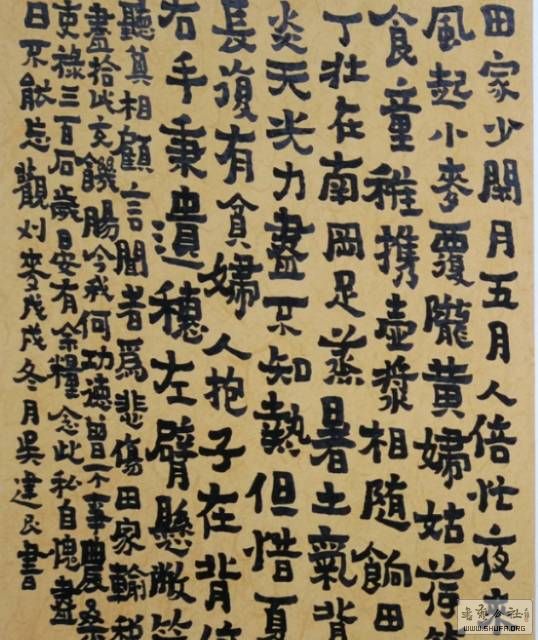 田家少閑月五月人倍忙夜來
風起小麥覆隴黃婦姑荷
食童稚携壺漿相随餉田
丁壯在南岡足蒸暑土氣背
炎天光力盡不知熱但惜夏
長復有貧婦人抱子在背
右手秉遺穗左臂懸敝
聽其相顧言聞者爲悲傷田家輸稅
盡拾此充饑腸今我何功德曾不事農桑
吏祿三百石歲晏有余糧念此私自愧盡
日不能忘觀刈麥戊戌冬月吴建民書
書藝公社
WWW.SHUFA.ORG